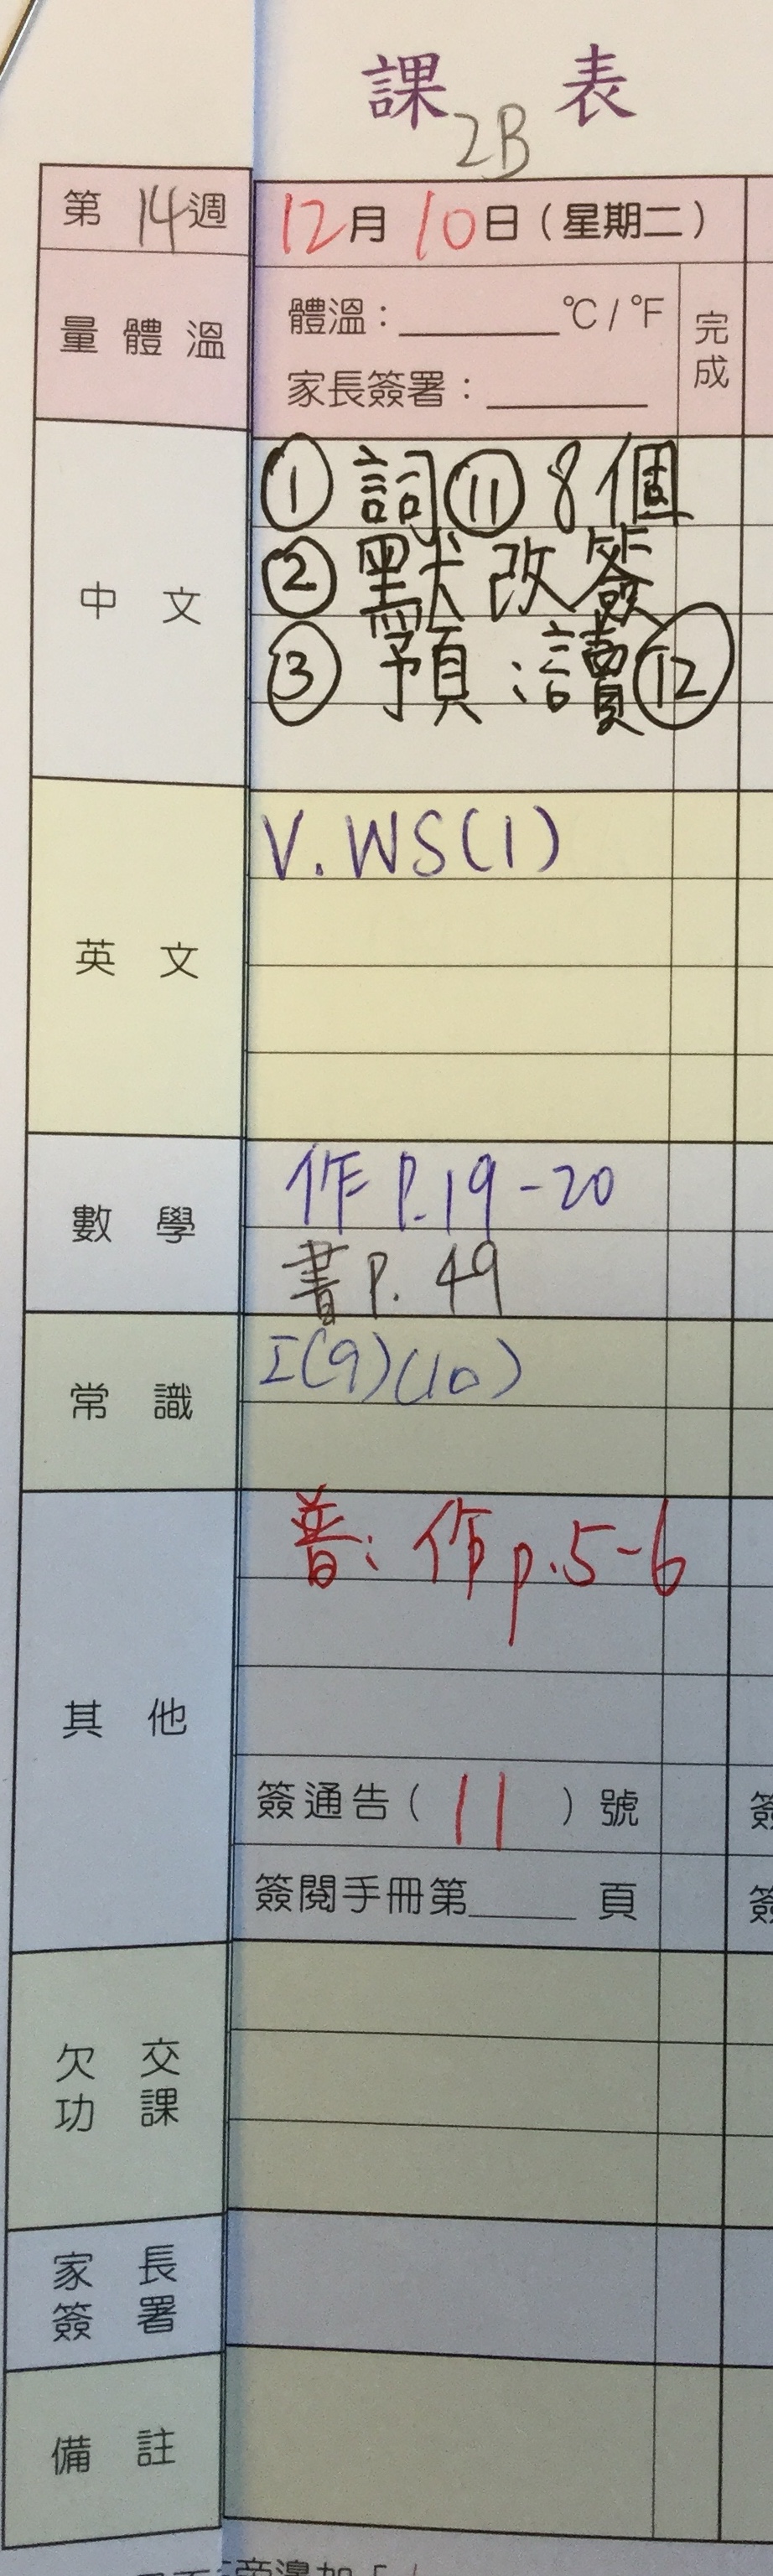 課表
2B
第 14 週
12月10日（星期二）
量體溫
體溫：______°C / °F
家長簽署：______
完成
中文
① 詞⑪ 8個
② 默改簽
③ 預：讀⑫
英文
V. WS(1)
數學
作 P.19-20
書 P. 49
常識
I(9)(10)
其他
普：作 p.5-6
簽通告（ 11 ）號
簽
簽閱手冊第____頁
簽
欠交功課
家長簽署
備註